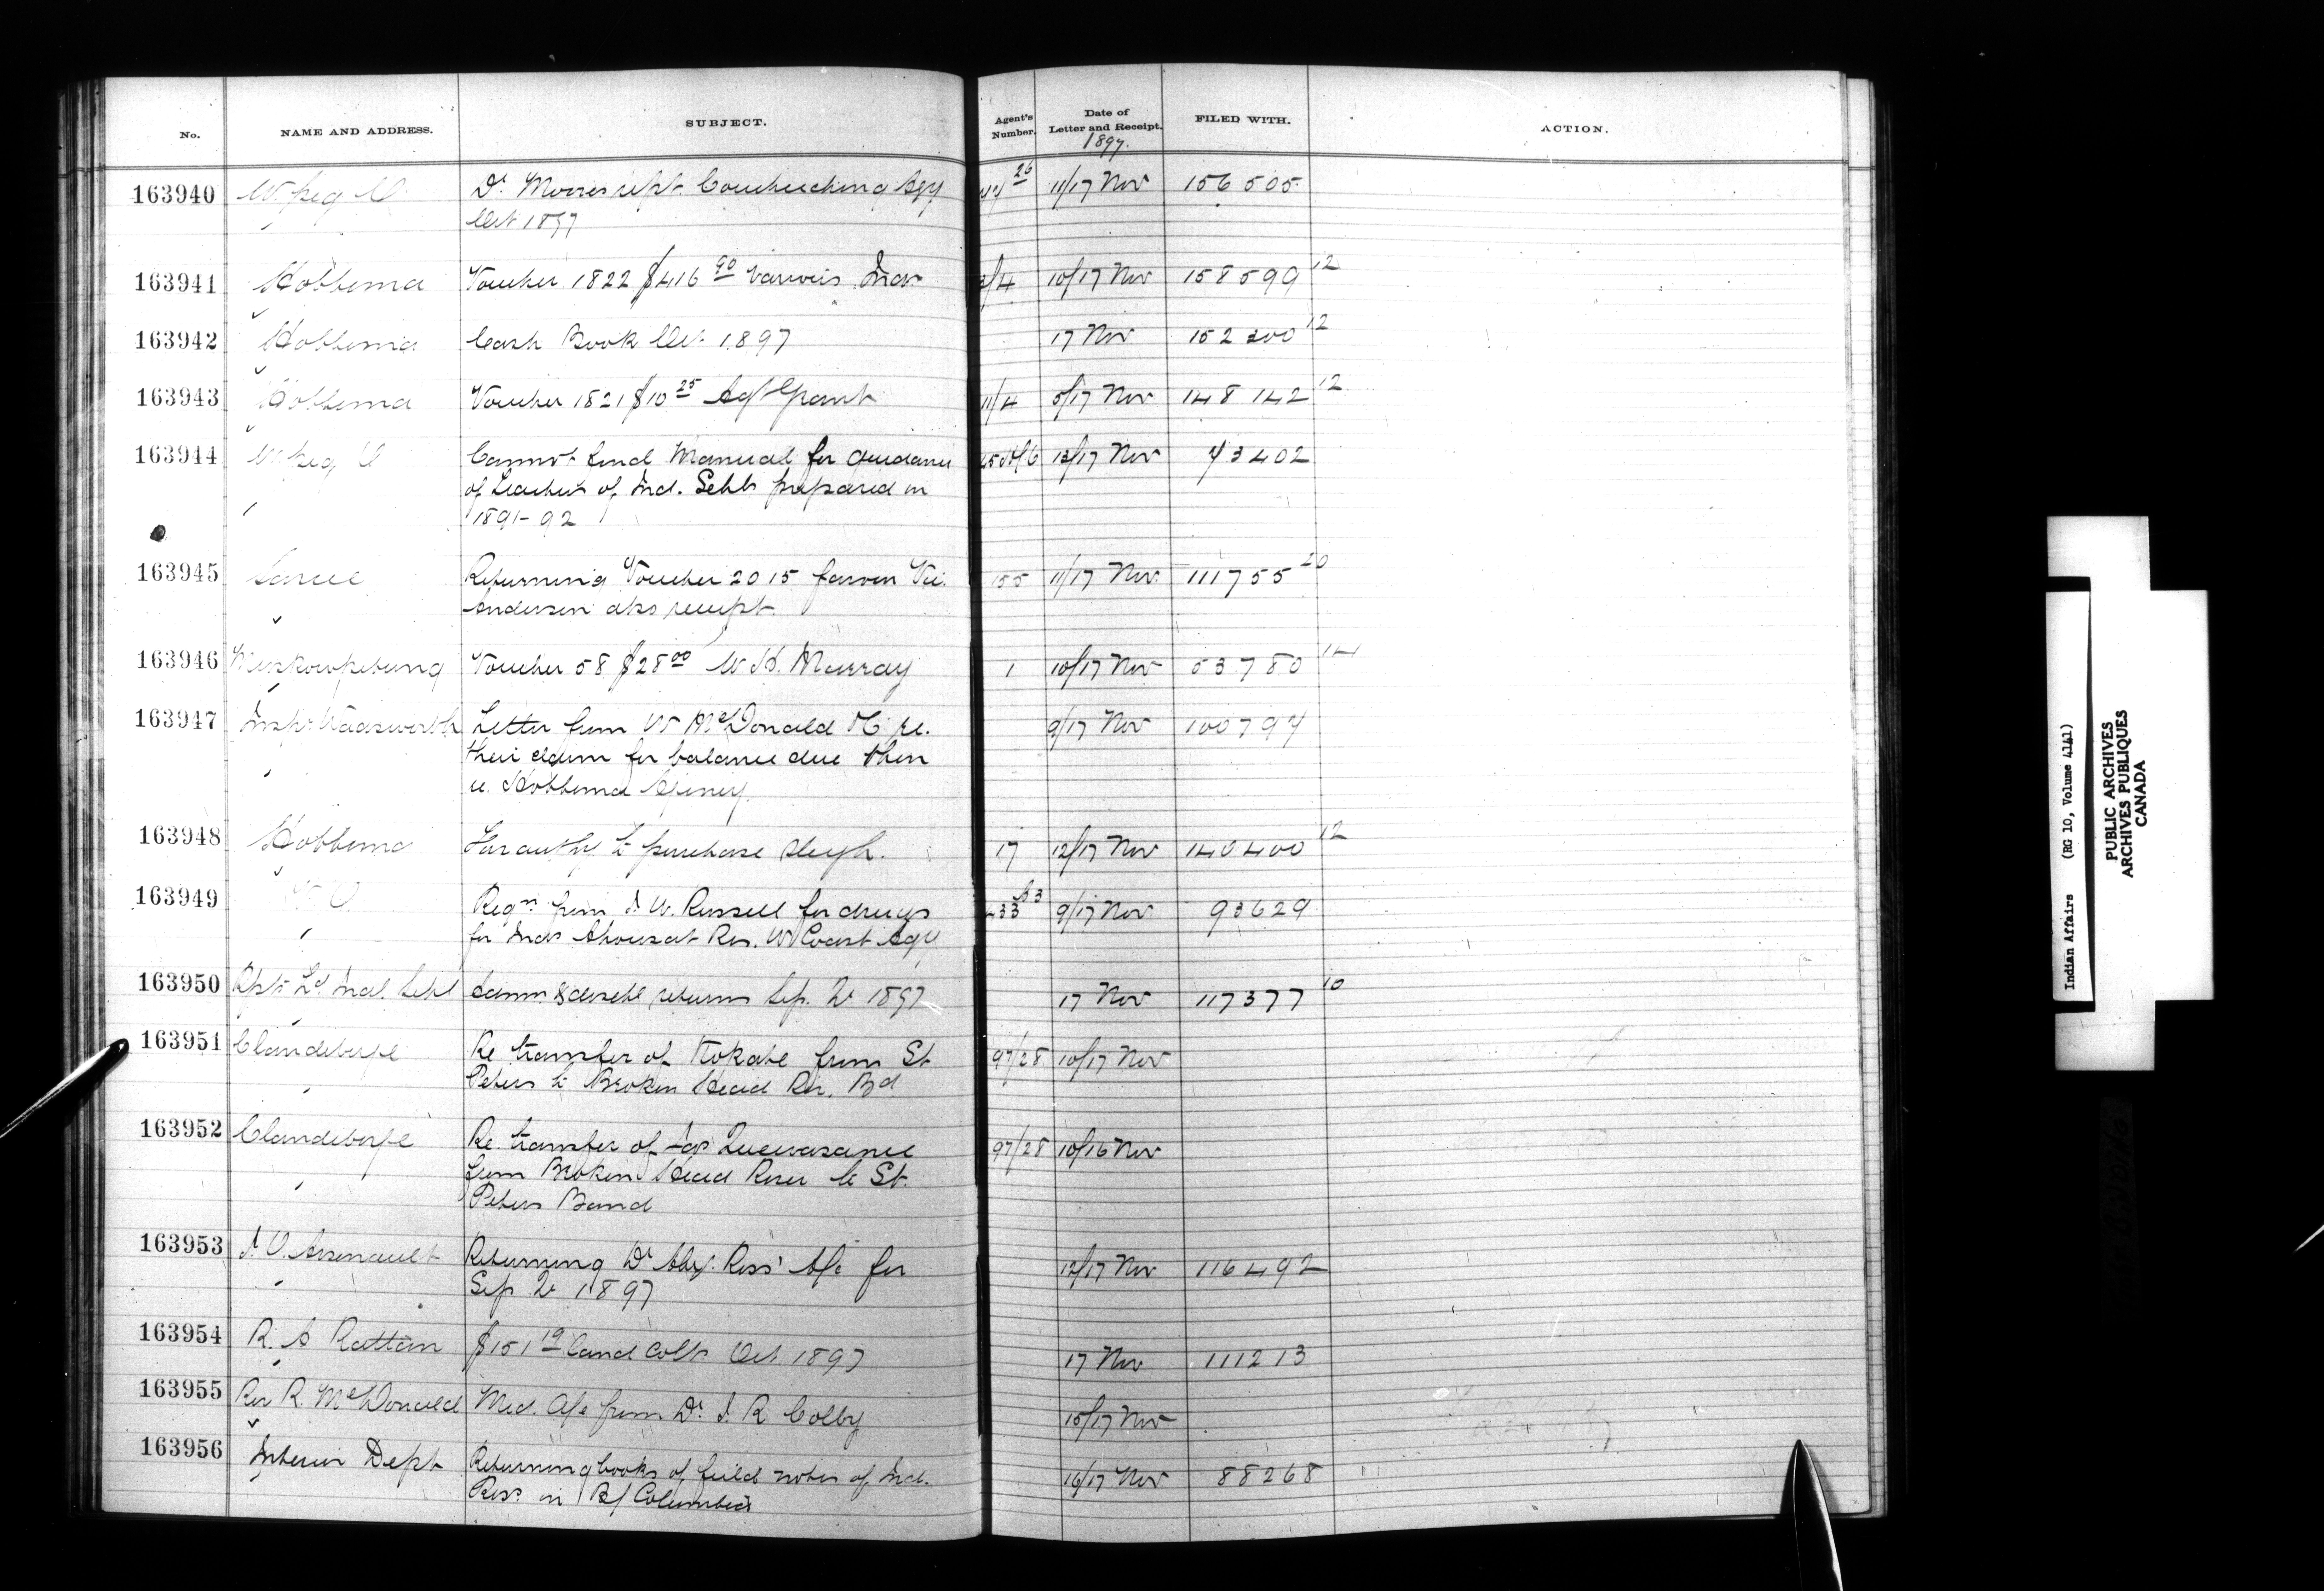 No. NAME AND ADDRESS. SUBJECT. Agent's Number. Date of Letter and Receipt. 1897. FILED WITH. ACTION.
163940 W.peg O Dr. Moores rept. Couchiching Agy 26 11/17 Nov 156505
Oct 1897
163941 Hobbema Voucher 1822 $416 90 various Inds 2/4 10/17 Nov 158599 12
163942 Hobbema Cash Book Oct 1897 17 Nov 152300 12
163943 Hobbema Voucher 1821 $10 25 Agt Grant 11/4 5/17 Nov 148142 12
163944 W.peg O Cannot find Manual for guidance 13/17 Nov 43402
of teachers of Ind. Schls prepared in
1891-92
163945 Sarcee Returning Voucher 2015 favour 155 11/17 Nov. 111755 20
Anderson also receipt.
163946 Muskowpetung Voucher 58 $28 00 W. H. Murray 1 10/17 Nov 53780 14
163947 Insp. Wadsworth Letter from W McDonald & Co re. 9/17 Nov 100794
their claim for balance due them
Hobbema Agency.
163948 Hobbema For authy to purchase sleigh. 17 12/17 Nov 140400 12
163949 V. O. Reqn from J. W. Russell for drugs 433 9/17 Nov 93629
for Inds Ahousat Res. W Coast Agy
163950 Ind. Schl returns Sep. Qr 1897 17 Nov 117377 10
163951 Clandeboye Re transfer of from St 97/28 10/17 Nov
Peters to Broken Head Riv. Bd
163952 Clandeboye Re. transfer of Jas 97/28 10/16 Nov
from Broken Head River to St.
Peters Band
163953 J. O. Arsenault Returning Dr Alex. Ross' A/c for 12/17 Nov 116492
Sep Qr 1897
163954 R. A Ruttan $151 19 land colls Oct 1897 17 Nov 111213
163955 Rev R. McDonald Med. A/c from Dr. J. R Colby 15/17 Nov
163956 Interior Dept Returning books of field notes of Ind. 16/17 Nov 88268
Ress in B/ Columbia
Indian Affairs (RG 10, Volume 4141)
PUBLIC ARCHIVES
ARCHIVES PUBLIQUES
CANADA